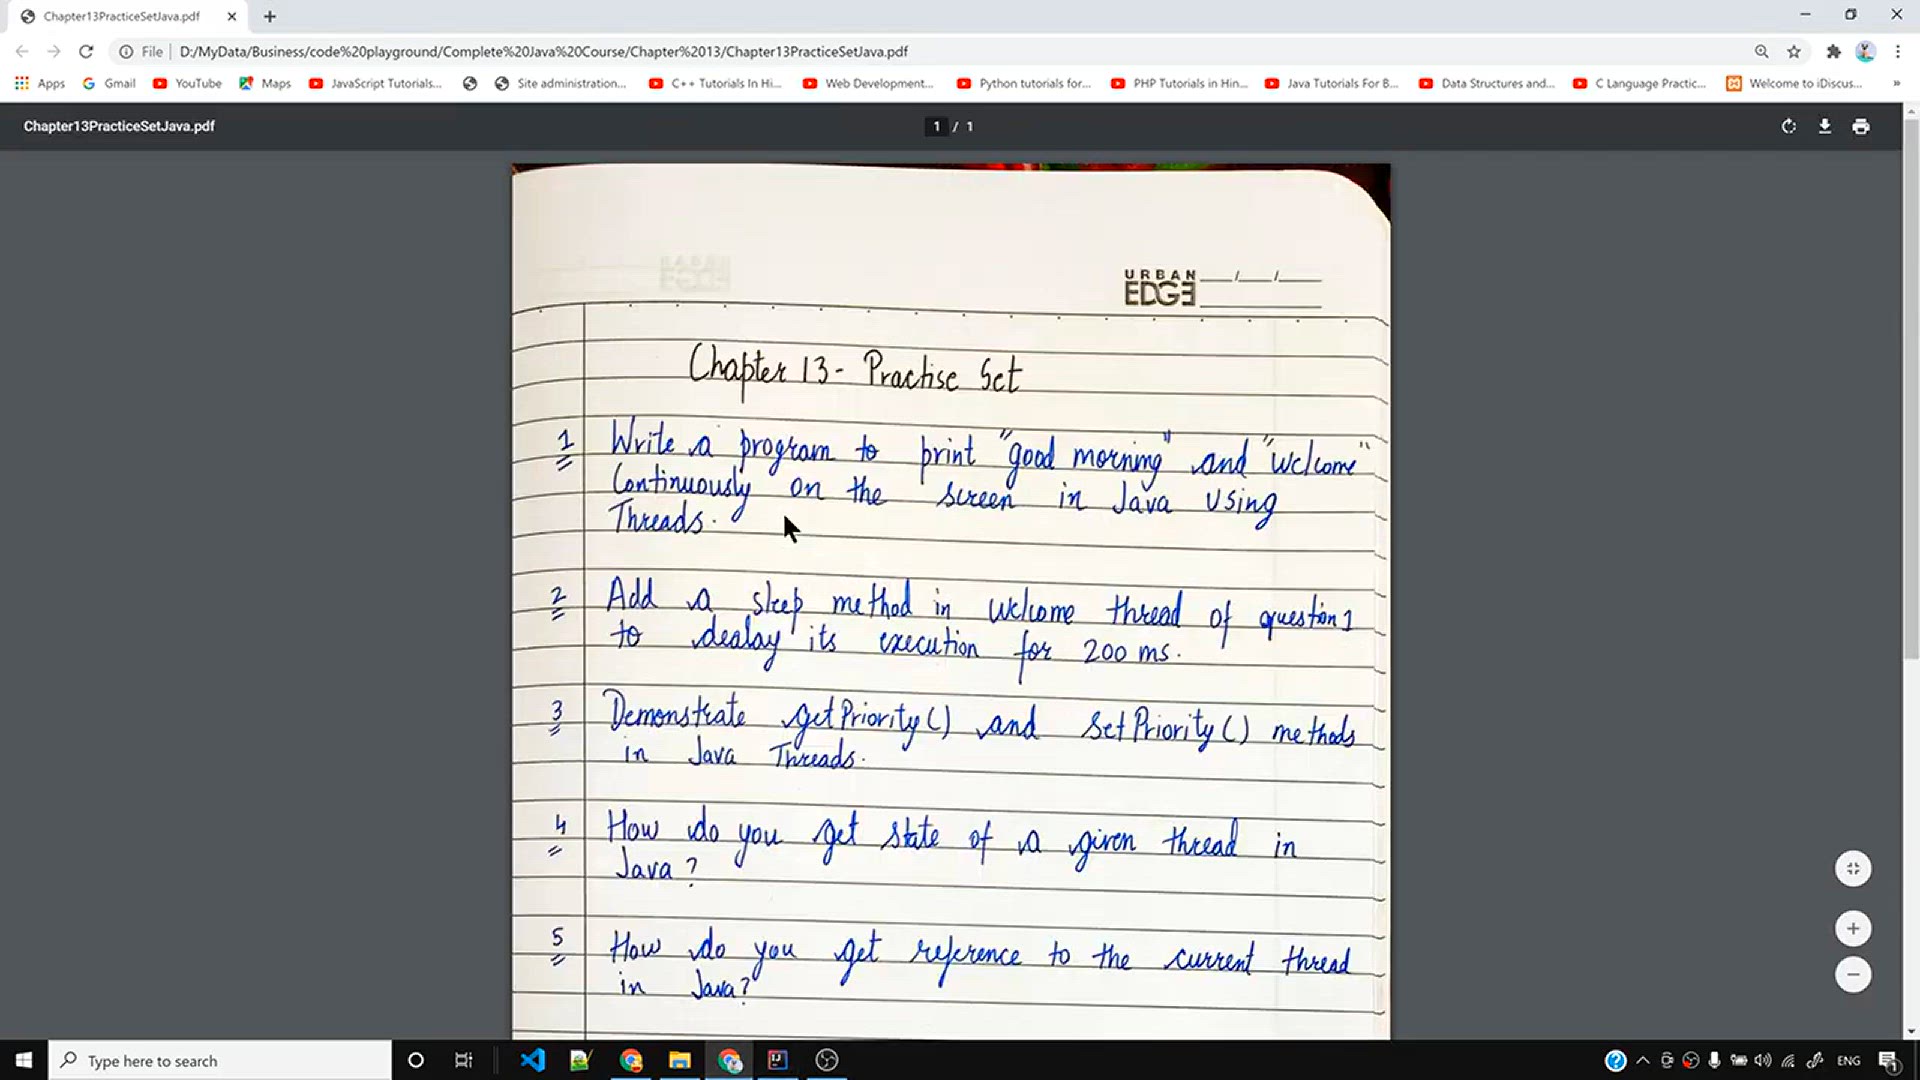 Chapter13PracticeSetJava.pdf
File D:/MyData/Business/code%20playground/Complete%20Java%20Course/Chapter%2013/Chapter13PracticeSetJava.pdf
Apps Gmail YouTube Maps JavaScript Tutorials... Site administration... C++ Tutorials In Hi... Web Development... Python tutorials for... PHP Tutorials in Hin... Java Tutorials For B... Data Structures and... C Language Practic... Welcome to iDiscus... »
Chapter13PracticeSetJava.pdf 1 / 1
URBAN
EDGE
Chapter 13 - Practise Set
1 Write a program to print "good morning" and "welcome"
Continuously on the screen in Java using
Threads.
2 Add a sleep method in welcome thread of question 1
to dealay its execution for 200 ms.
3 Demonstrate getPriority() and setPriority() methods
in Java Threads.
4 How do you get state of a given thread in
Java?
5 How do you get reference to the current thread
in Java?
Type here to search
ENG